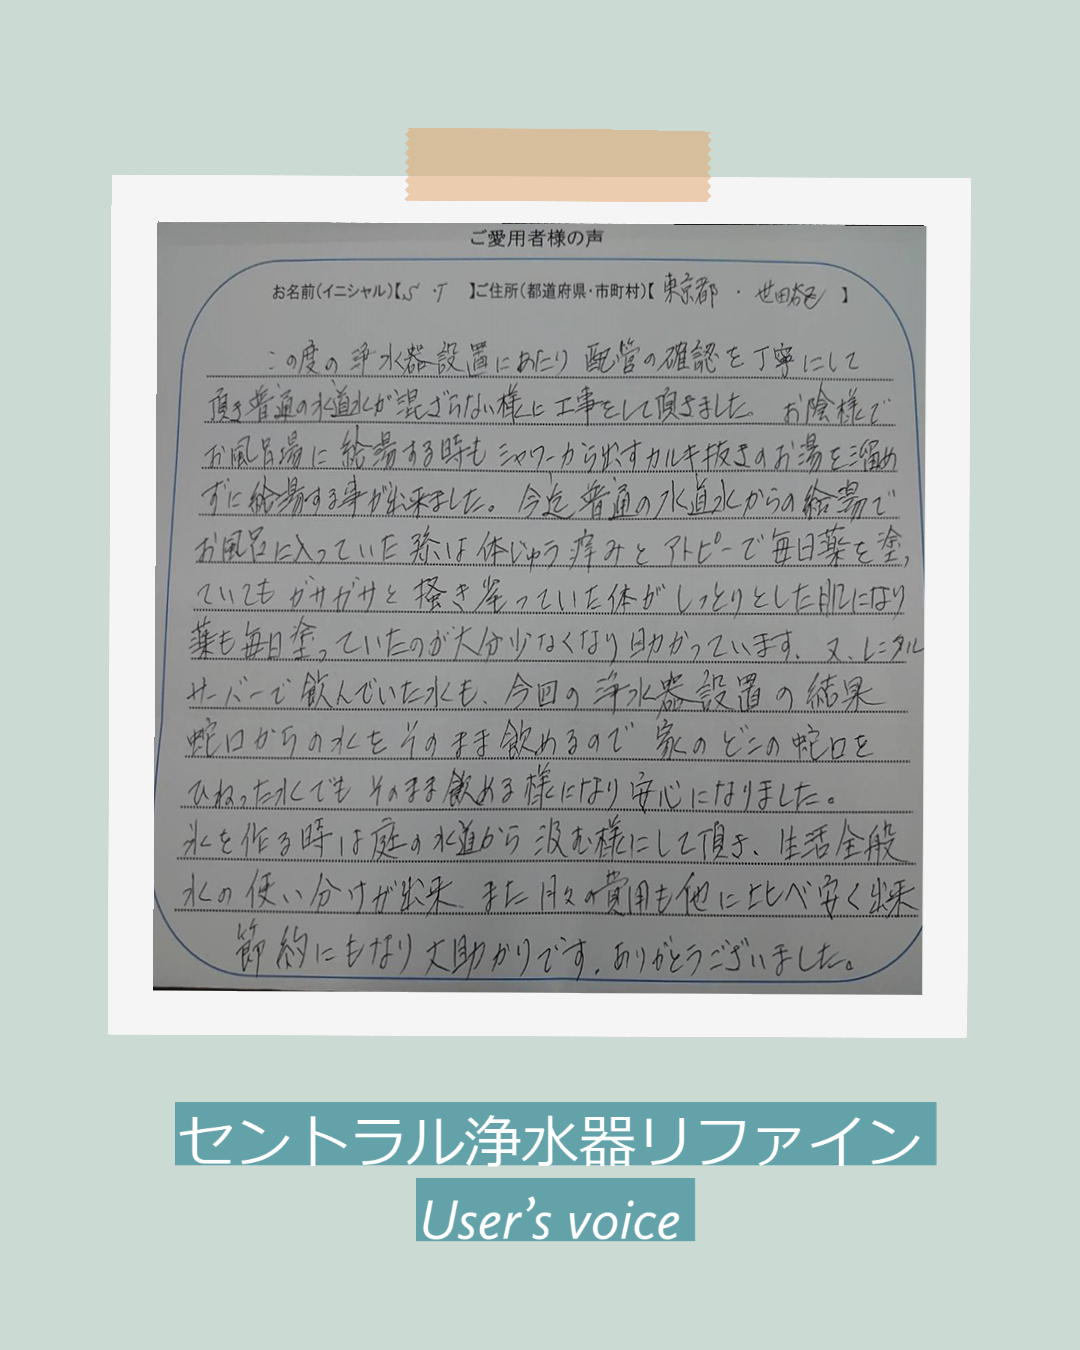 ご愛用者様の声
お名前(イニシャル)【S・T 】ご住所(都道府県・市町村)【 東京都 ・ 世田谷区 】
この度の浄水器設置にあたり 配管の確認を丁寧にして
頂き普通の水道水が混ざらない様に工事をして頂きました。 お陰様で
お風呂場に給湯する時も シャワーから出すカルキ抜きのお湯を溜め
ずに給湯する事が出来ました。 今迄普通の水道水からの給湯で
お風呂に入っていた 際は体じゅう痒みとアトピーで毎日薬を塗っ
ていてもガサガサと掻き毟っていた体がしっとりとした肌になり
薬も毎日塗っていたのが大分少なくなり助かっています。又、レンタル
サーバーで飲んでいた水も、今回の浄水器設置の結果
蛇口からの水をそのまま飲めるので 家のどこの蛇口を
ひねった水でもそのまま飲める様になり安心になりました。
氷を作る時は庭の水道から汲む様にして頂き、生活全般
水の使い分けが出来、また月々の費用も他に比べ安く出来
節約にもなり大助かりです。ありがとうございました。
セントラル浄水器リファイン
User’s voice